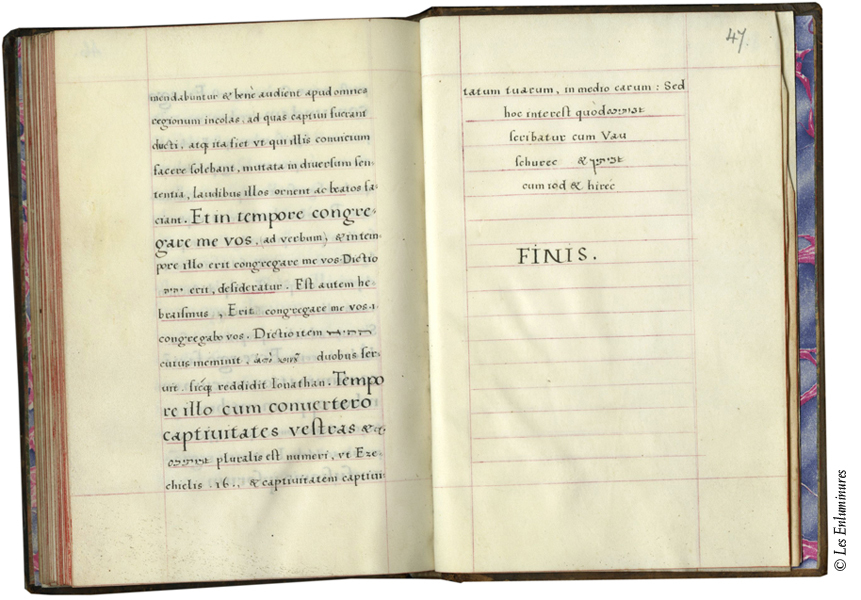 mendabuntur & benè audient apud omnes
regionum incolas, ad quas captivi fuerant
ducti, atq; ita fiet vt qui illis convicium
facere solebant, mutata in diversum sen-
tentia, laudibus illos ornent ac beatos fa-
ciant. Et in tempore congre-
gare me vos. ad verbum, & in tem-
pore illo erit congregare me vos. Dictio
erit, desideratur. Est autem he-
braismus, Erit congregare me vos. i.
congregabo vos. Dictio item
cuius meminit. duobus ser-
uit. sicq; reddidit Ionathan. Tempo
re illo cum convertero
captivitates vestras &c.
pluralis est numeri, vt Eze-
chielis .16.. & captivitatem captivi
47.
tatum tuarum, in medio earum: Sed
hoc interest quòd
scribatur cum Vau
schurec &
cum iod & hirec
FINIS.
© Les Enluminures